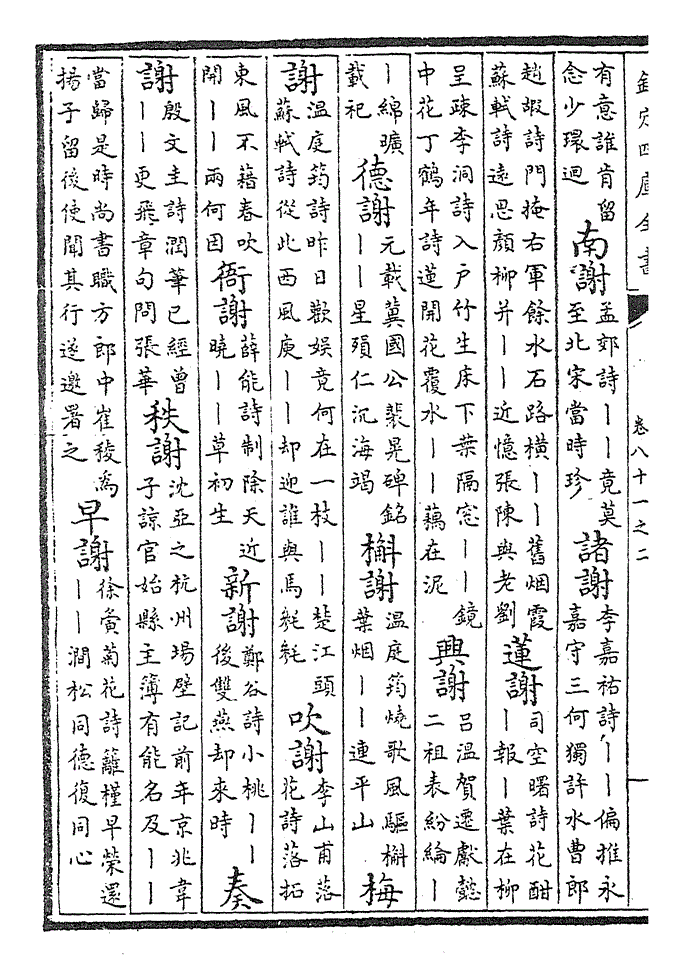 欽定四庫全書
卷八十一之二
有意誰肯留
念少環迴
南謝
孟郊詩丨丨竟莫
至北宋當時珍
諸謝
李嘉祐詩丨丨偏推永
嘉守三何獨許水曹郎
趙嘏詩門掩右軍餘水石路橫丨丨舊烟霞
蘇軾詩遠思顔柳并丨丨近憶張陳與老劉
蓮謝
司空曙詩花酣
丨報丨葉在柳
呈疎李洞詩入戶竹生床下葉隔窓丨丨鏡
中花丁鶴年詩蓮開花覆水丨丨藕在泥
興謝
呂温賀遷獻懿
二祖表紛綸丨
丨綿曠
載祀
德謝
元載冀國公裴晃碑銘
丨丨星殞仁沉海竭
槲謝
温庭筠燒歌風驅槲
葉烟丨丨連平山
梅
謝
温庭筠詩昨日歡娱竟何在一枝丨丨楚江頭
蘇軾詩從此西風庾丨丨却迎誰與馬毿毿
吹謝
李山甫落
花詩落拓
東風不藉春吹
開丨丨兩何因
衙謝
薛能詩制除天近
曉丨丨草初生
新謝
鄭谷詩小桃丨丨
後雙燕却來時
奏
謝
殷文主詩潤筆已經曾
丨丨更飛章句問張華
秩謝
沈亞之杭州場壁記前年京兆韋
子諒官始縣主簿有能名及丨丨
當歸是時尚書職方郎中崔稜為
揚子留後使聞其行遂邀署之
早謝
徐夤菊花詩籬槿早榮還
丨丨澗松同德復同心